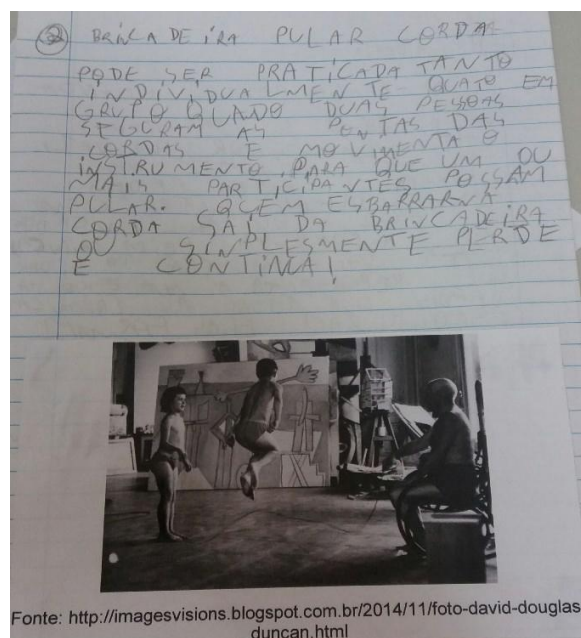 ② BRINCADEIRA PULAR CORDA
PODE SER PRATICADA TANTO
INDIVIDUALMENTE QUATO EM
GRUPO QUADO DUAS PESSOAS
SEGURAM AS PONTAS DAS
CORDAS E MOVIMENTA O
INSTRUMENTO, PARA QUE UM OU
MAIS PARTICIPANTES POSSAM
PULAR. QUEM ESBARRARNA
CORDA SAI DA BRINCADEIRA
OU SINPLESMENTE PERDE
E CONTINUA!
Fonte: http://imagesvisions.blogspot.com.br/2014/11/foto-david-douglas
duncan.html